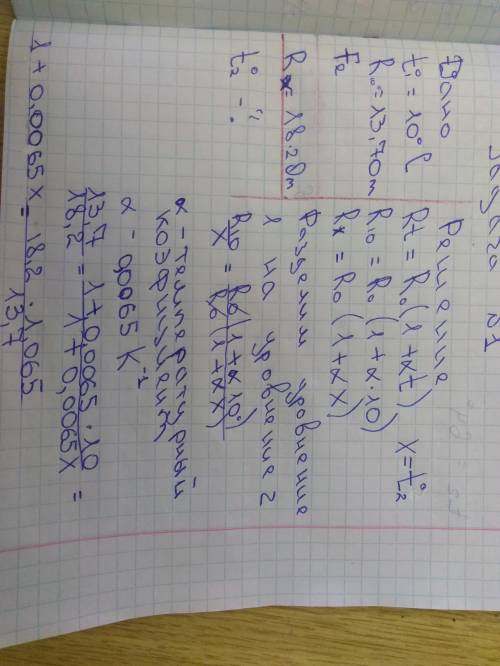 Задача №1
Дано
t₁° = 10° C
R₀ = 13,70 м
Fe
Rx = 18.20 m.
t₂° - ?
Решение
Rt = R₀(1+αt) x=t₂°
R₁₀ = R₀(1+α·10)
Rx = R₀(1+αx)
Разделим уровнение
1 на уровнение 2
R₁₀/X = R₀(1+α10°)/R₀(1+αx)
α - температурный
коэфициент
α - 0,0065 K⁻¹
13,7/18,2 = 1+0,0065·10/1+0,0065x =
1+0,0065x = 18,2·1,065/13,7